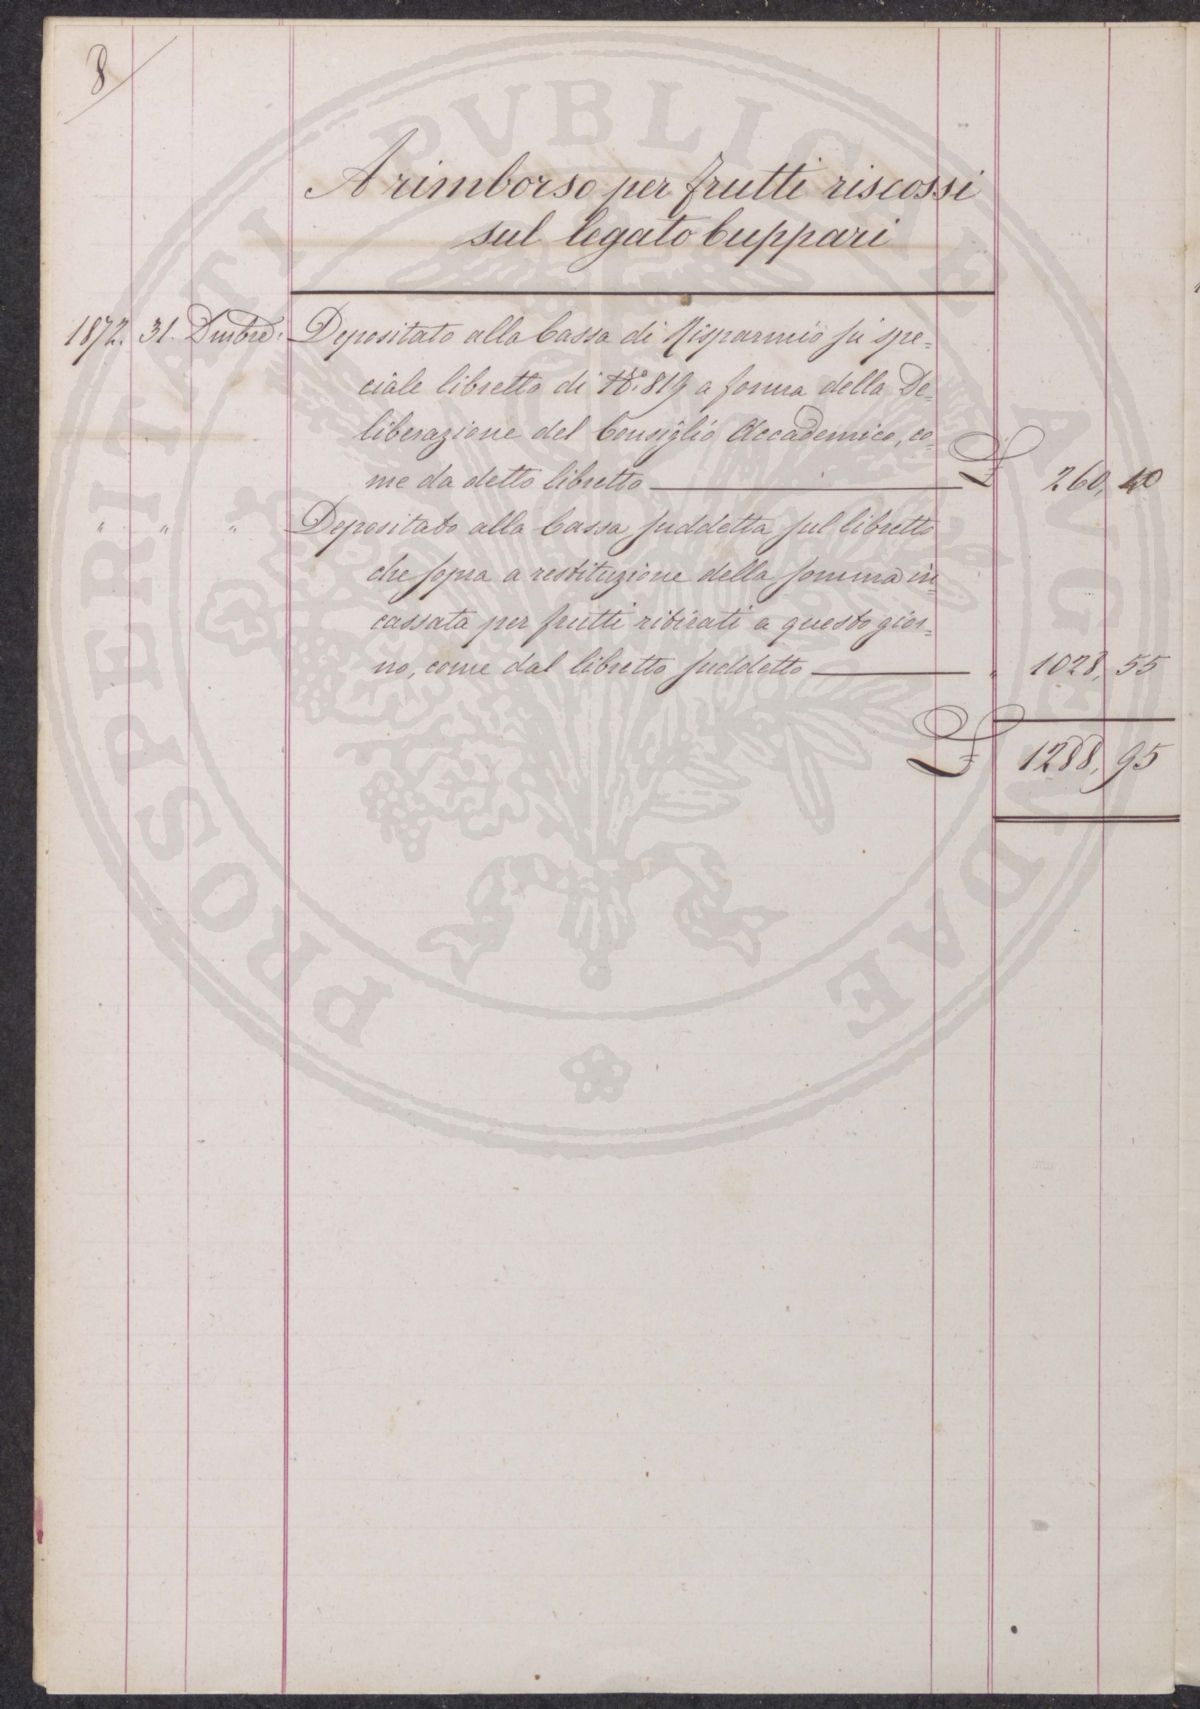 8
A rimborso per frutti riscossi
sul legato Cuppari
1872. 31. Dmbre: Depositato alla Cassa di Risparmio su spe=
ciale libretto di No. 819 a forma della De=
liberazione del Consiglio Accademico, co=
me da detto libretto £ 260, 40
" " " Depositato alla Cassa suddetta sul libretto
che sopra a restituzione della somma in=
cassata per frutti ritirati a questo gior=
no, come dal libretto suddetto " 1028, 55
£ 1288, 95
PROSPERITATI PVBLICAE AVGENDAE